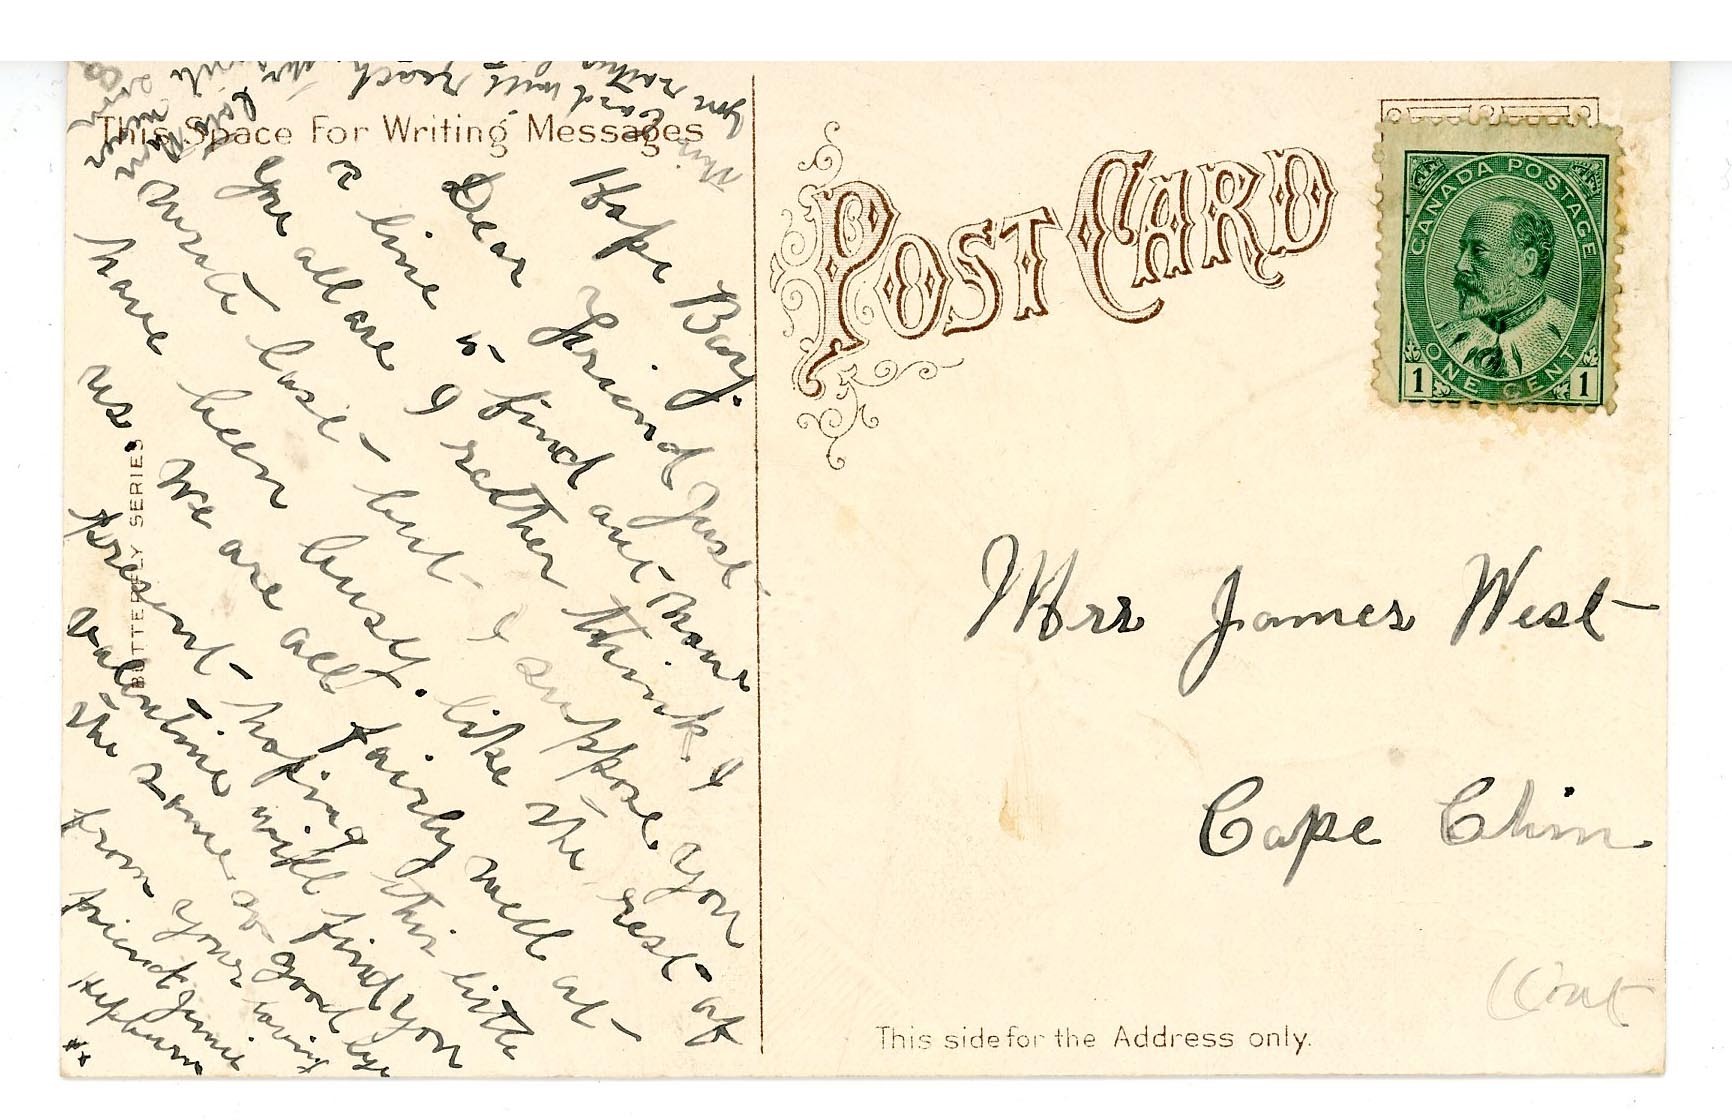 This Space For Writing Messages
Hope Bay.
Dear Friend Just
a line to find out how
you all are I rather think I
wrote last but I suppose you
have been busy. like the rest of
us. We are all fairly well at
present hoping this little
valentine will find you
the same so good bye
from your loving
friend Jennie
Hepburn
xx
card will reach
BUTTERFLY SERIES
POST CARD
CANADA POSTAGE
ONE CENT
1 1
Mrs James West
Cape Chin.
Ont
This side for the Address only.